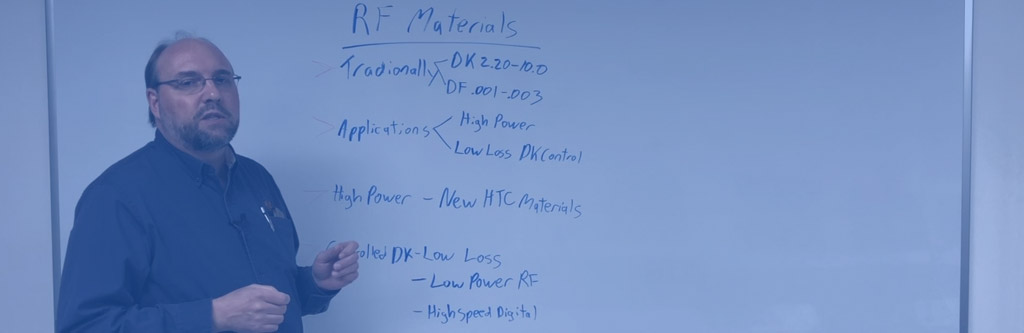 RF Materials
Tradionally DK 2.20-10.0
DF .001-.003
Applications High Power
Low Loss DK Control
High Power - New HTC Materials
DK-Low Loss
- Low Power RF
- High speed Digital